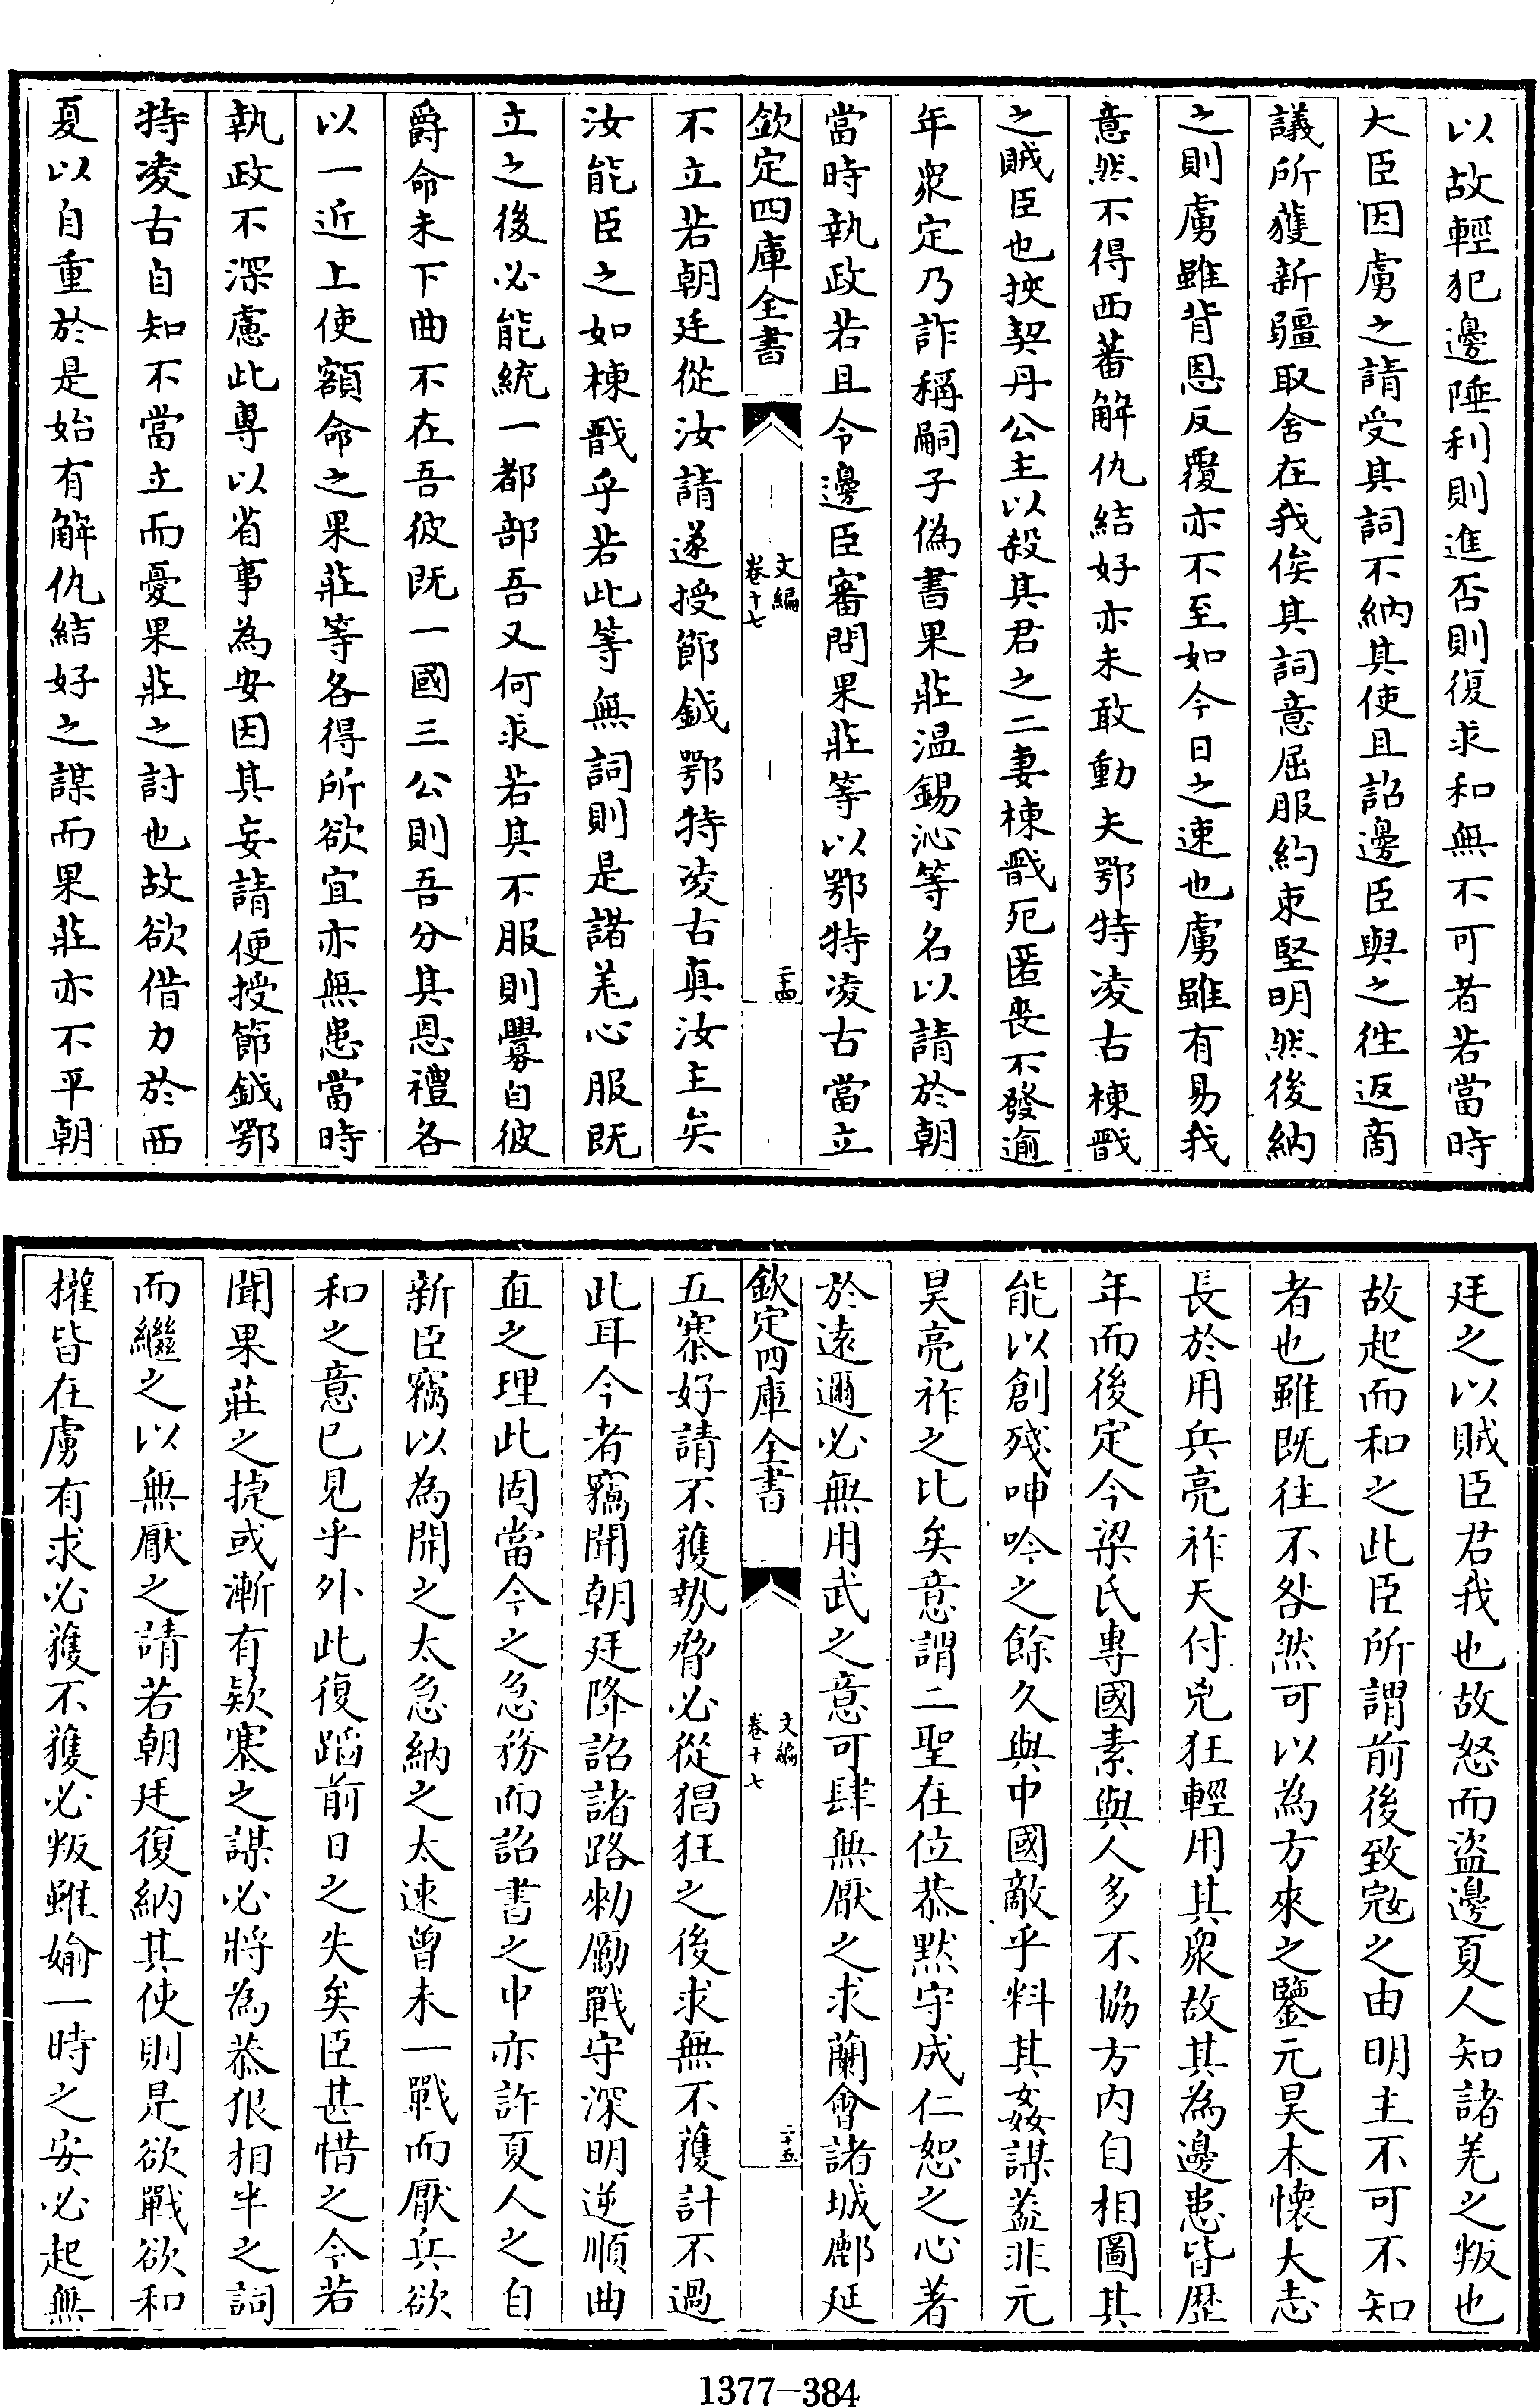 以故輕犯邊陲利則進否則復求和無不可者若當時
大臣因虜之請受其詞不納其使且詔邊臣與之往返商
議所獲新疆取舍在我俟其詞意屈服約束堅明然後納
之則虜雖背恩反覆亦不至如今日之速也虜雖有易我
意然不得西蕃解仇結好亦未敢動夫鄂特凌古棟戩
之賊臣也挾契丹公主以殺其君之二妻棟戩死匿喪不發逾
年衆定乃詐稱嗣子偽書果莊温錫沁等名以請於朝
當時執政若且令邊臣審問果莊等以鄂特凌古當立
欽定四庫全書
文編
卷十七
二十四
不立若朝廷從汝請遂授節鉞鄂特凌古真汝主矣
汝能臣之如棟戩乎若此等無詞則是諸羌心服既
立之後必能統一都部吾又何求若其不服則釁自彼
爵命未下曲不在吾彼既一國三公則吾分其恩禮各
以一近上使額命之果莊等各得所欲宜亦無患當時
執政不深慮此專以省事為安因其妄請便授節鉞鄂
特凌古自知不當立而憂果莊之討也故欲借力於西
夏以自重於是始有解仇結好之謀而果莊亦不平朝
廷之以賊臣君我也故怒而盜邊夏人知諸羌之叛也
故起而和之此臣所謂前後致宼之由明主不可不知
者也雖既往不咎然可以為方來之鑒元昊本懷大志
長於用兵亮祚天付兇狂輕用其衆故其為邊患皆歷
年而後定今梁氏專國素與人多不協方内自相圖其
能以創殘呻吟之餘久與中國敵乎料其姦謀蓋非元
昊亮祚之比矣意謂二聖在位恭默守成仁恕之心著
於遠邇必無用武之意可肆無厭之求蘭會諸城鄜延
欽定四庫全書
文編
卷十七
二十五
五寨好請不獲勢脅必從猖狂之後求無不獲計不過
此耳今者竊聞朝廷降詔諸路勑勵戰守深明逆順曲
直之理此固當今之急務而詔書之中亦許夏人之自
新臣竊以為開之太急納之太速曾未一戰而厭兵欲
和之意已見乎外此復蹈前日之失矣臣甚惜之今若
聞果莊之捷或漸有欵塞之謀必將為恭狠相半之詞
而繼之以無厭之請若朝廷復納其使則是欲戰欲和
權皆在虜有求必獲不獲必叛雖媮一時之安必起無
1377-384